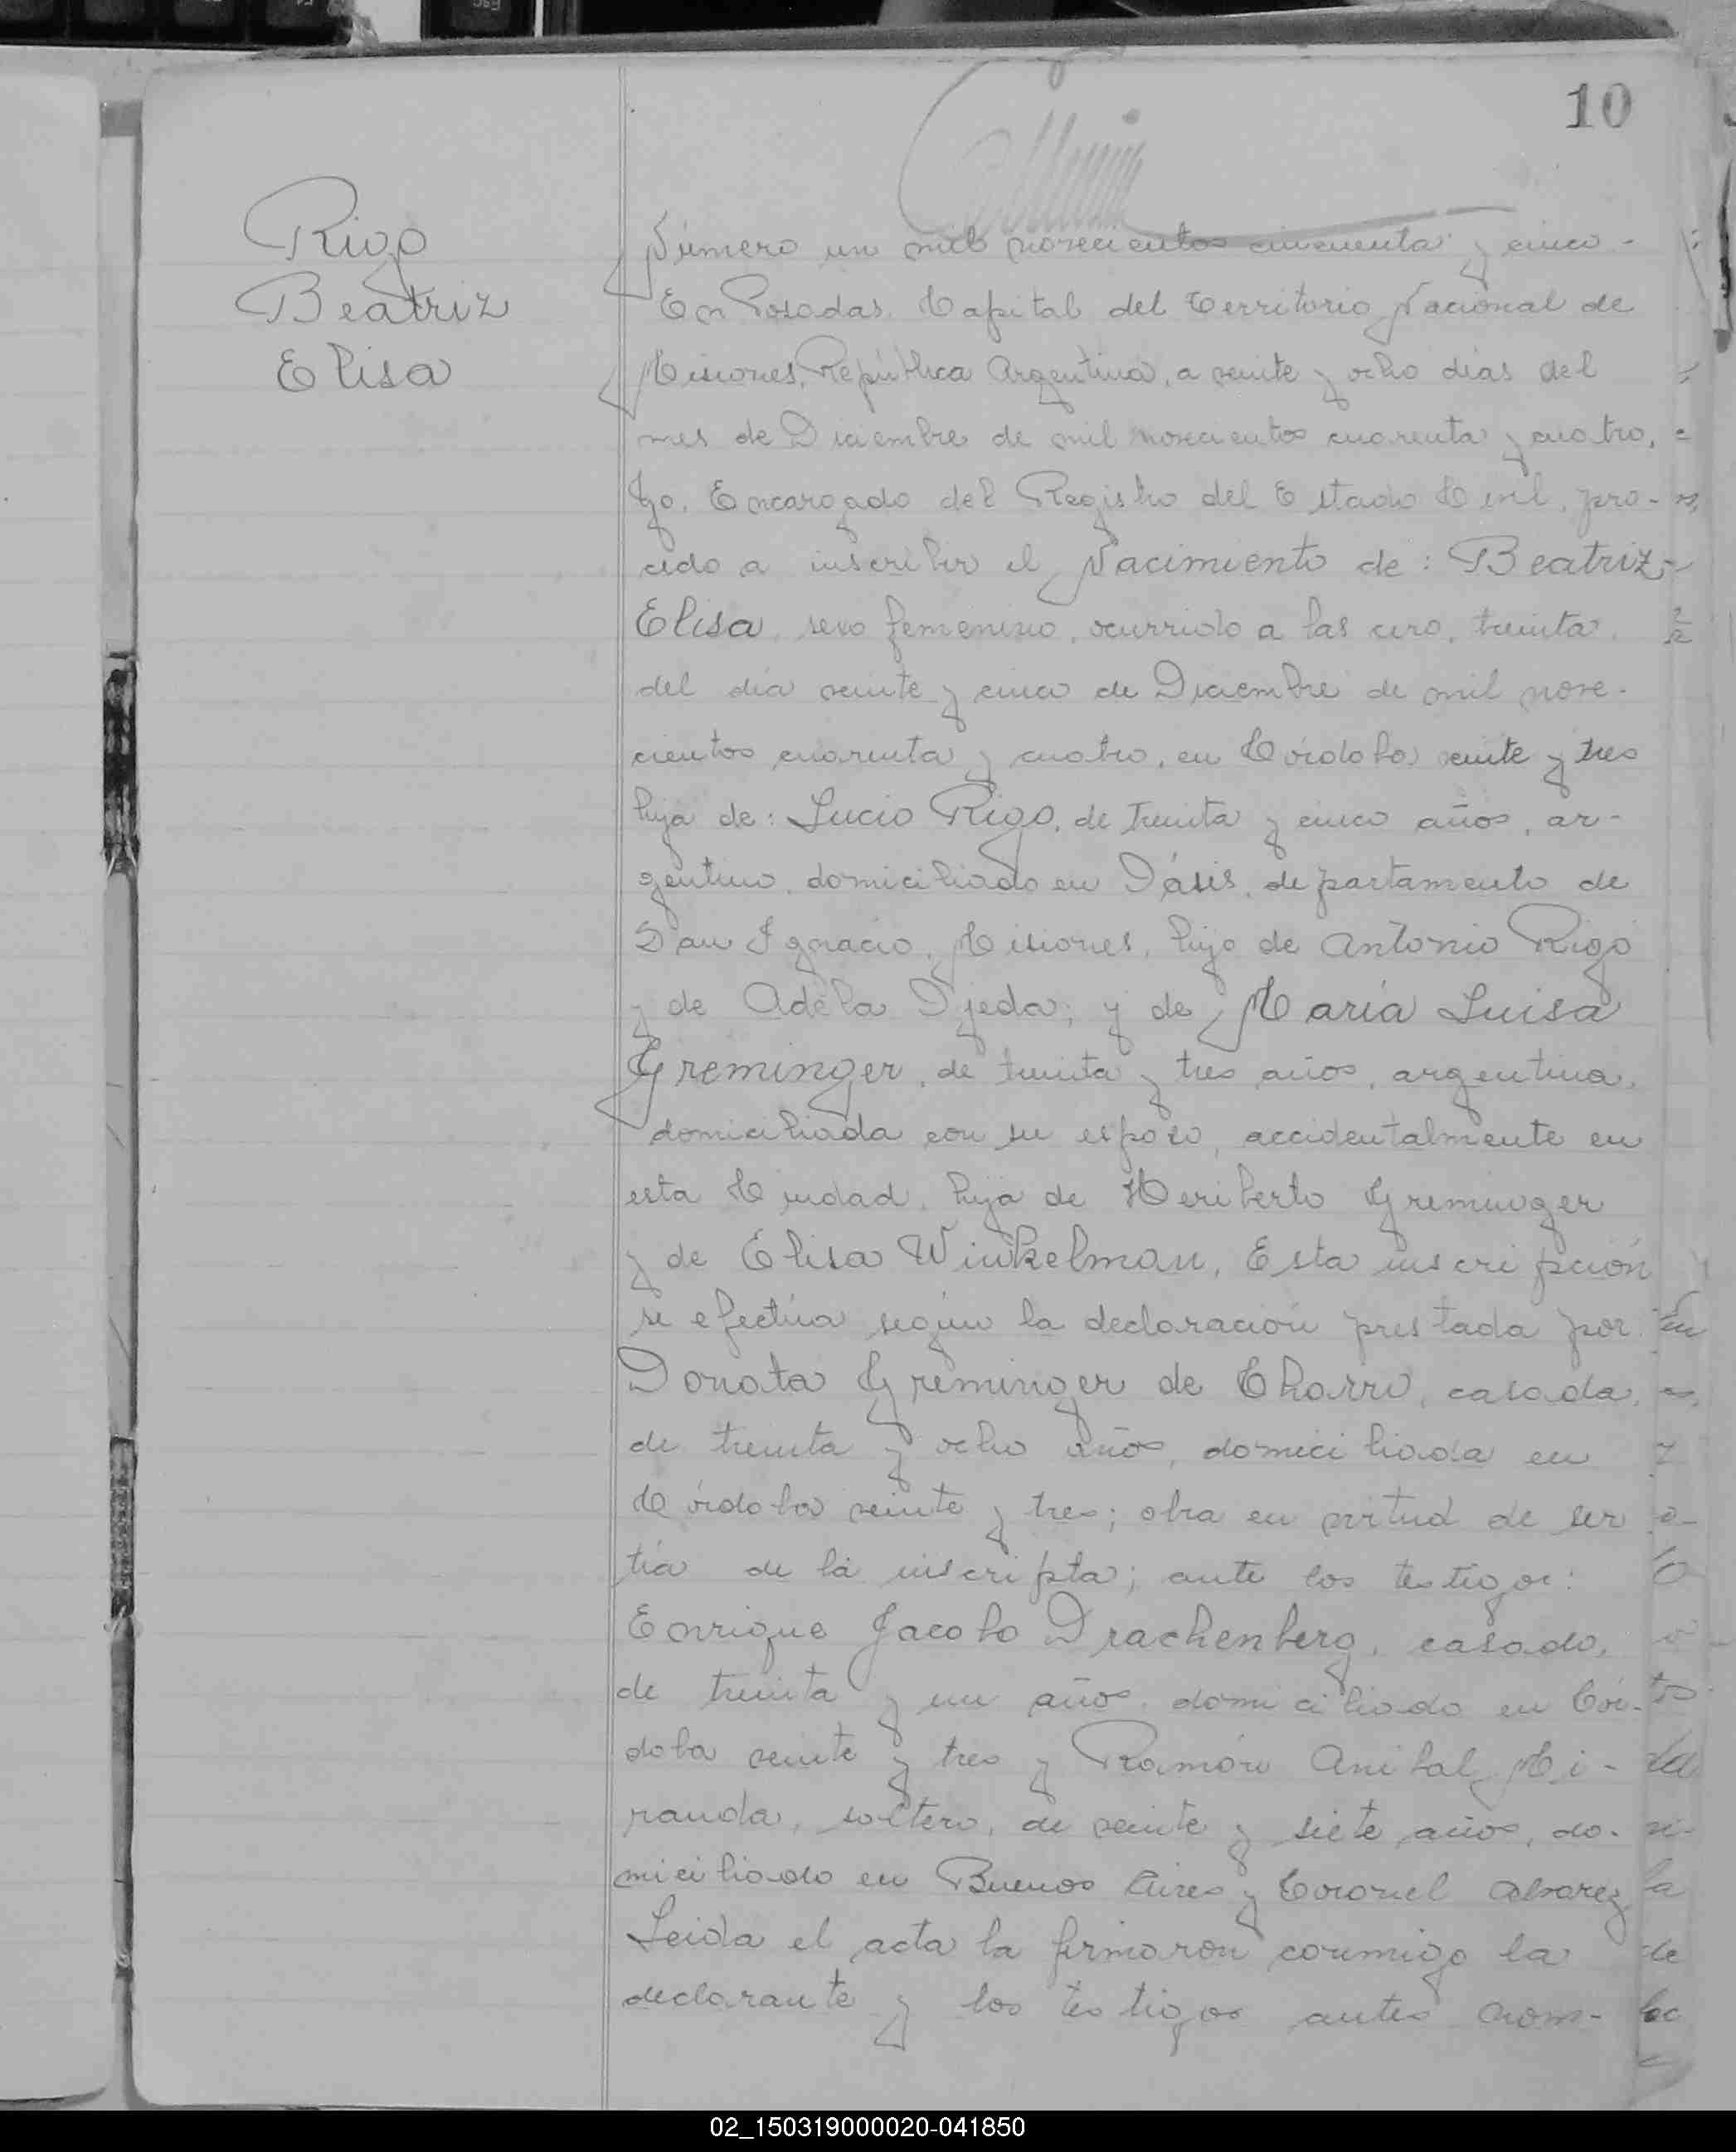 10
Rigo
Beatriz
Elisa
Número un mil novecientos cincuenta y cinco-
En Posadas, Capital del Territorio Nacional de
Misiones, República Argentina, a veinte y ocho dias del
mes de Diciembre de mil novecientos cuarenta y cuatro,
Yo, Encargado del Registro del Estado Civil, pro-
cedo a inscribir el Nacimiento de: Beatriz-
Elisa, sexo femenino, ocurrido a las cero, treinta,
del día veinte y cinco de Diciembre de mil nove-
cientos cuarenta y cuatro, en Córdoba veinte y tres
hija de: Lucio Rigo, de treinta y cinco años, ar-
gentino, domiciliado en Oásis, departamento de
San Ignacio, Misiones, hijo de Antonio Rigo
y de Adela Ojeda; y de María Luisa
Greminger, de treinta y tres años, argentina,
domiciliada con su esposo, accidentalmente en
esta Ciudad, hija de Heriberto Greminger
y de Elisa Winkelman, Esta inscripción
se efectúa según la declaración prestada por
Donata Greminger de Charro, casada,
de treinta y ocho años, domiciliada en
Córdoba veinte y tres; obra en virtud de ser
tía de la inscripta; ante los testigos:
Enrique Jacobo Drachenberg, casado,
de treinta y un años, domiciliado en Cór-
doba veinte y tres y Ramón Anibal Mi-
randa, soltero, de veinte y siete años, do-
miciliado en Buenos Aires y Coronel Alvarez
Leida el acta la firmaron conmigo la
declarante y los testigos antes nom-
02_150319000020-041850